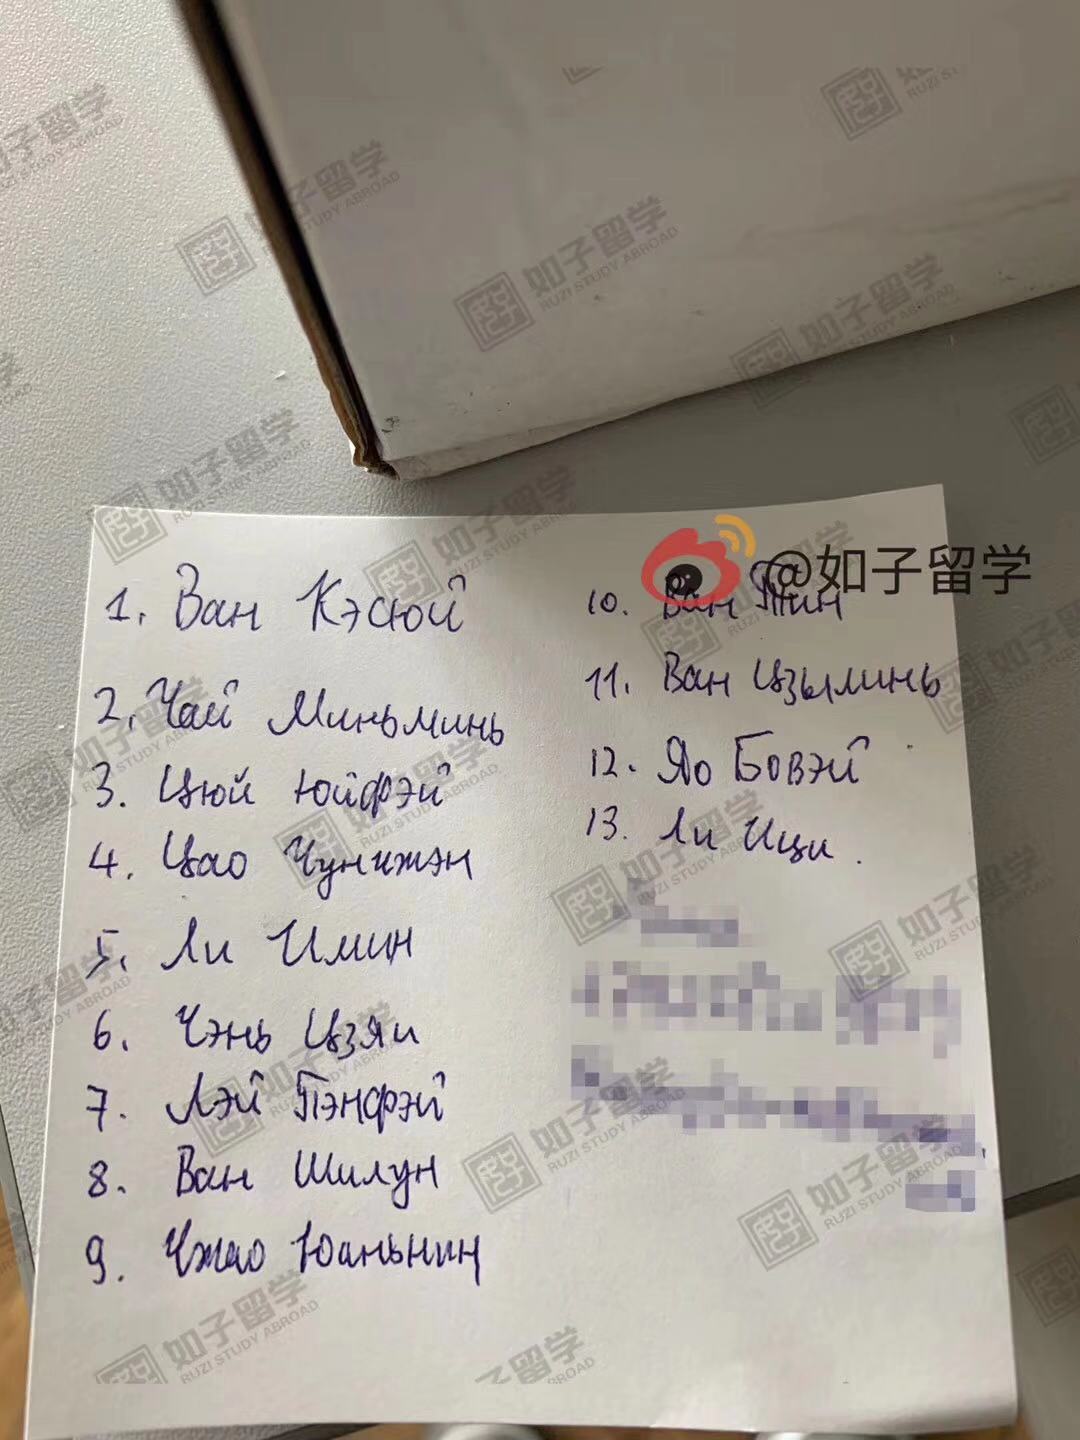 1. Ван Кэсюй
2. Чай Миньминь
3. Цюй Юйфэй
4. Цао Чунчжэн
5. Ли Имин
6. Чэнь Цзяи
7. Лэй Пэнфэй
8. Ван Шилун
9. Чжао Юаньнин
@如子留学
10. Ван Тин
11. Ван Цзыминь
12. Яо Бовэй
13. Ли Ици.
如子留学
RUZI STUDY ABROAD